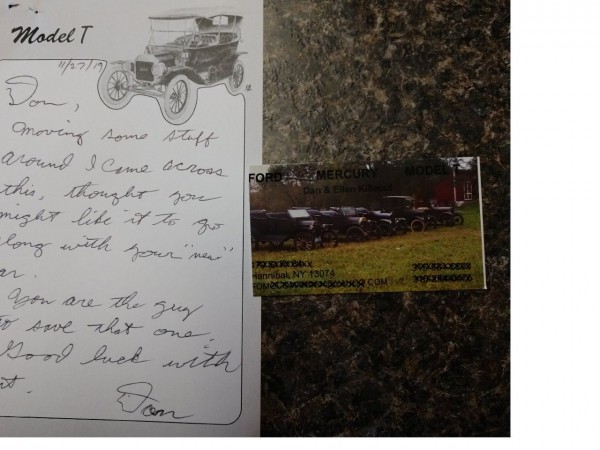 Model T
11/27/19
12
Tom,
Moving some stuff
around I came across
this, thought you
might like it to go
along with your "new"
ar.
You are the guy
to save that one.
Good luck with
it.
Tom
FORD MERCURY MODEL T
Dan & Ellen
Hannibal, NY 13074
COM